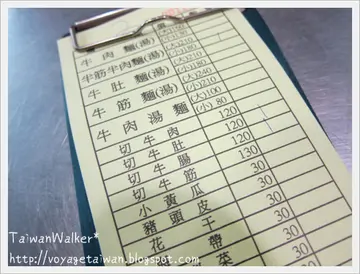 牛肉麵(湯)
牛筋半肉麵(湯) (大)210
牛肚麵(湯) (大)210
牛筋麵(湯) (大)240 (小)210
牛肉湯麵 (大)100 (小)80
切牛肉 120
切牛肚 120
切牛腸 130
切牛筋
小黃瓜 30
豬頭皮 30
花干 30
帶 30
菜
TaiwanWalker*
http://voyagetaiwan.blogspot.com